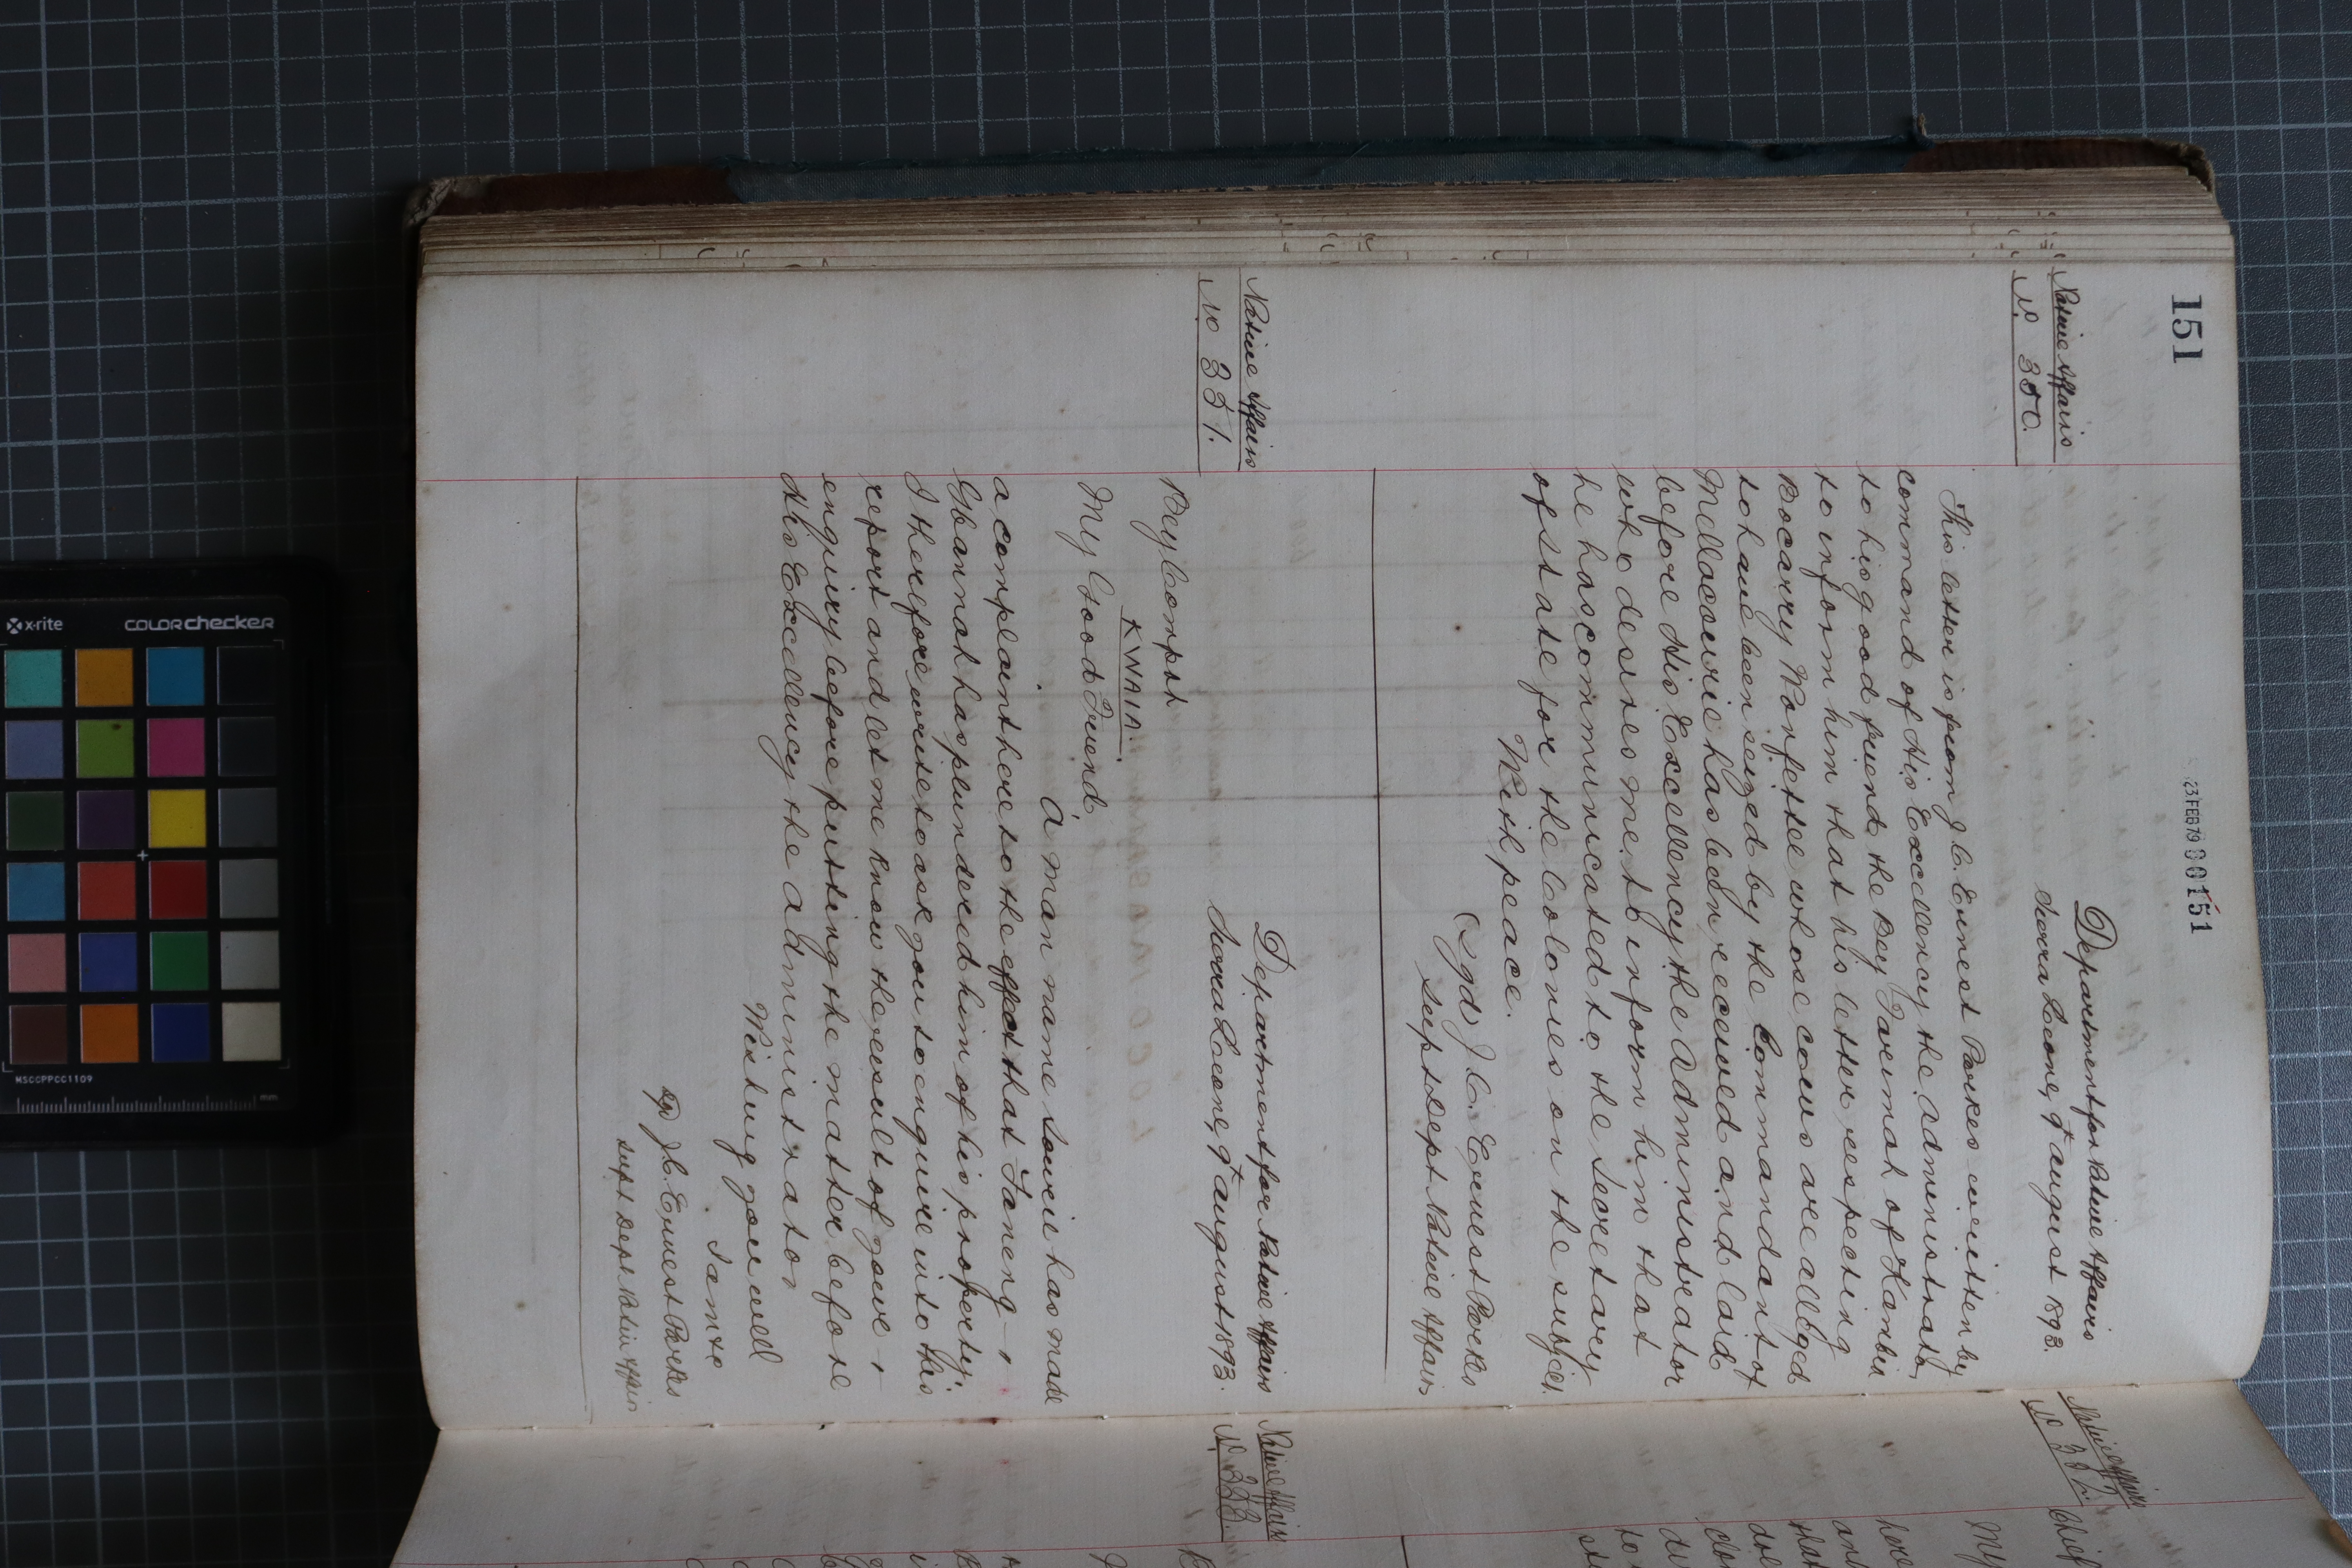 151
23 FEB 79 000151
Native Affairs
No 350.
Department for Native Affairs
Sierra Leone, 9th August 1893.
This letter is from J. C. Ernest Parkes written by
command of His Excellency the Administrator
to his good friend the Bey Farimah of Kambia
to inform him that his letter respecting
Bocarry Wonfettee whose cows are alleged
to have been seized by the Commandant of
Mellacourie has been received and laid
before His Excellency the Administrator
who desires me to inform him that
he has communicated to the Secretary
of state for the Colonies on the subject.
With peace.
(Sgd) J. C. Ernest Parkes
Supt Dept Native Affairs
Native Affairs
No 351.
Department for Native Affairs
Sierra Leone, 9th August 1893.
Bey Compah
KWAIA.
My Good Friend,
A man name Sowrie has made
a complaint here to the effect that Fameng
Gbannah has plundered him of his property.
I therefore write to ask you to enquire into this
report and let me know the result of your
enquiry before putting the matter before
His Excellency the Administrator
Wishing you well
I am &c
Sgd J. C. Ernest Parkes
Supt Dept Native Affairs
Native Affairs
No 352.
Chief
My
here
Native Affairs
No 353.
x-rite
COLORchecker
MSCCPPCC1109
mm